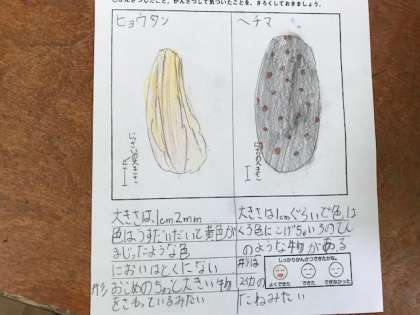 しかたをしたこと、かんさつして気づいたことを、きろくしておきましょう。
ヒョウタン
ヘチマ
大きさは、1cm2mm
色はうすだいだいと黄色が
まじったような色
においはとくにない
形
おこめのちょっと大きい物
をさわっているみたい
大きさは1cmぐらいで色は
くろ色にこげちゃいろのてん
のような物がある
形は
スイカの
たねみたい
しっかりかんさつできたかな。
よくできた
できた
できなかった